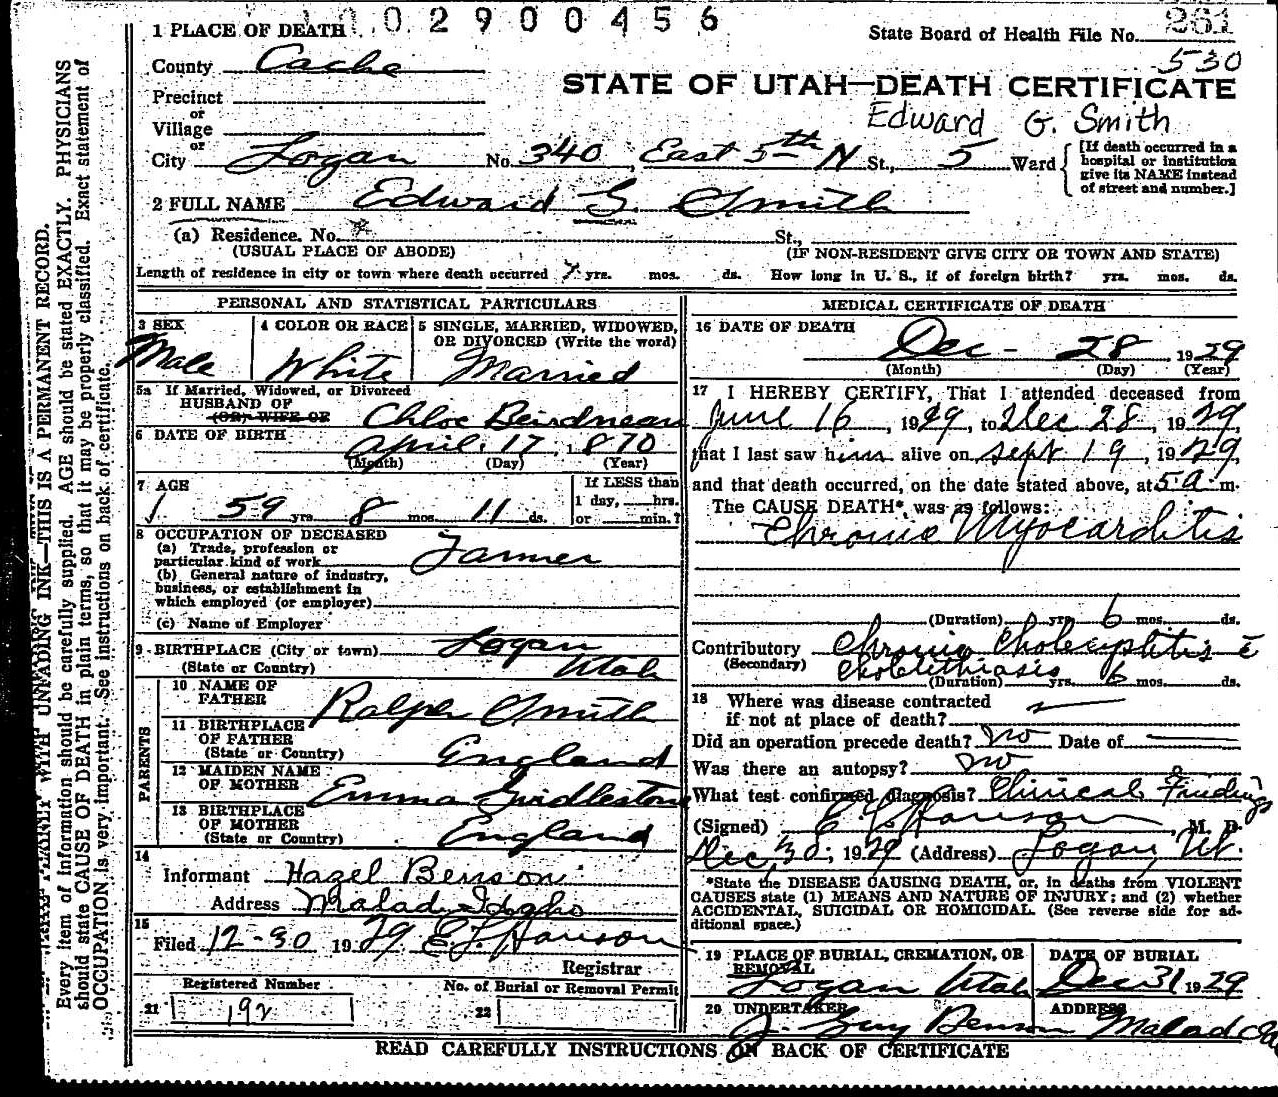 1002900456
1 PLACE OF DEATH
State Board of Health File No. 261
530
County Cache
STATE OF UTAH—DEATH CERTIFICATE
Precinct
or
Village
or
Edward G. Smith
City Logan No. 340, East 5th N St., 5 Ward
[If death occurred in a
hospital or institution
give its NAME instead
of street and number.]
2 FULL NAME Edward G. Smith
(a) Residence. No. St.,
(USUAL PLACE OF ABODE) (IF NON-RESIDENT GIVE CITY OR TOWN AND STATE)
Length of residence in city or town where death occurred yrs. mos. ds. How long in U. S., if of foreign birth? yrs. mos. ds.
PERSONAL AND STATISTICAL PARTICULARS
3 SEX
Male
4 COLOR OR RACE
White
5 SINGLE, MARRIED, WIDOWED,
OR DIVORCED (Write the word)
Married
5a If Married, Widowed, or Divorced
HUSBAND OF
(OR) WIFE OF Chloe Beirdneau
6 DATE OF BIRTH April 17, 1870
(Month) (Day) (Year)
7 AGE
59 yrs 8 mos 11 ds.
If LESS than
1 day, hrs.
or min.?
8 OCCUPATION OF DECEASED
(a) Trade, profession or
particular kind of work Farmer
(b) General nature of industry,
business, or establishment in
which employed (or employer)
(c) Name of Employer
9 BIRTHPLACE (City or town) Logan
(State or Country) Utah
PARENTS
10 NAME OF
FATHER Ralph Smith
11 BIRTHPLACE
OF FATHER
(State or Country) England
12 MAIDEN NAME
OF MOTHER Emma Girdlestone
13 BIRTHPLACE
OF MOTHER
(State or Country) England
14
Informant Hazel Benson
Address Malad Idaho
15
Filed 12-30 1929
Registrar
Registered Number
21 192
No. of Burial or Removal Permit
22
MEDICAL CERTIFICATE OF DEATH
16 DATE OF DEATH
Dec - 28, 1929
(Month) (Day) (Year)
17 I HEREBY CERTIFY, That I attended deceased from
June 16, 1929, to Dec 28, 1929,
that I last saw him alive on Sept 19, 1929,
and that death occurred, on the date stated above, at 5 a. m.
The CAUSE DEATH*, was as follows:
Chronic Myocarditis
(Duration) yrs 6 mos. ds.
Contributory Chronic Cholecystitis c̄
(Secondary) Cholelithiasis
(Duration) yrs. 6 mos. ds.
18 Where was disease contracted
if not at place of death?
Did an operation precede death? No Date of
Was there an autopsy? No
What test confirmed diagnosis? Clinical Findings
(Signed) M. D.
Dec, 30, 1929 (Address) Logan, Ut.
*State the DISEASE CAUSING DEATH, or, in deaths from VIOLENT
CAUSES state (1) MEANS AND NATURE OF INJURY; and (2) whether
ACCIDENTAL, SUICIDAL OR HOMICIDAL. (See reverse side for ad-
ditional space.)
19 PLACE OF BURIAL, CREMATION, OR
REMOVAL
Logan Utah
DATE OF BURIAL
Dec 31 1929
20 UNDERTAKER
J. Guy Benson
ADDRESS
Malad
READ CAREFULLY INSTRUCTIONS ON BACK OF CERTIFICATE
WITH UNFADING INK—THIS IS A PERMANENT RECORD.
Every item of information should be carefully supplied. AGE should be stated EXACTLY. PHYSICIANS
should state CAUSE OF DEATH in plain terms, so that it may be properly classified. Exact statement of
OCCUPATION is very important. See instructions on back of certificate.